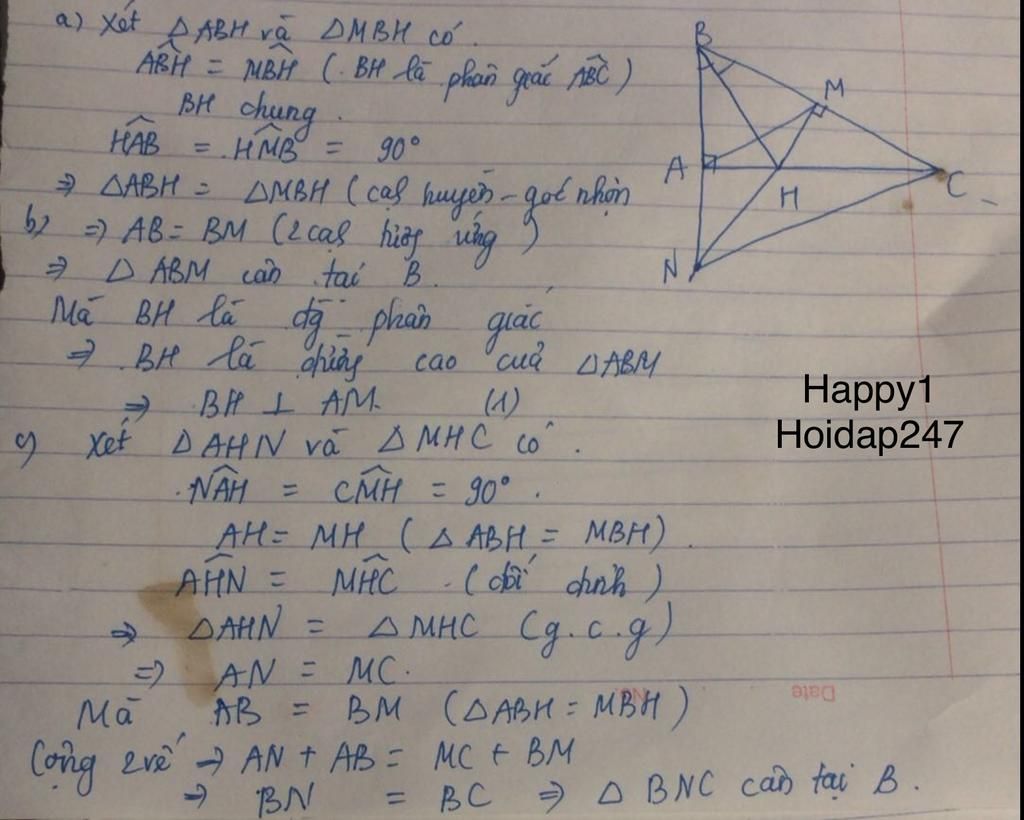 a) Xét △ABH và △MBH có.
ABH = MBH (BH là phân giác ABC)
BH chung.
HAB = HMB = 90°
⇒ △ABH = △MBH (cạh huyền - goć nhọn
b) ⇒ AB = BM (2 cạh tương ứng)
⇒ △ABM cân tại B.
Mà BH là đg phân giác
⇒ BH là đường cao cuả △ABM
⇒ BH ⊥ AM. (1)
c) Xét △AHN và △MHC có.
NAH = CMH = 90°.
AH = MH (△ABH = MBH).
AHN = MHC (đối đỉnh)
⇒ △AHN = △MHC (g.c.g)
⇒ AN = MC.
Mà AB = BM (△ABH = MBH)
Cộng 2 vế → AN + AB = MC + BM
⇒ BN = BC ⇒ △BNC cân tại B.
B
M
A
H
C
N
Happy1
Hoidap247
No.
Date